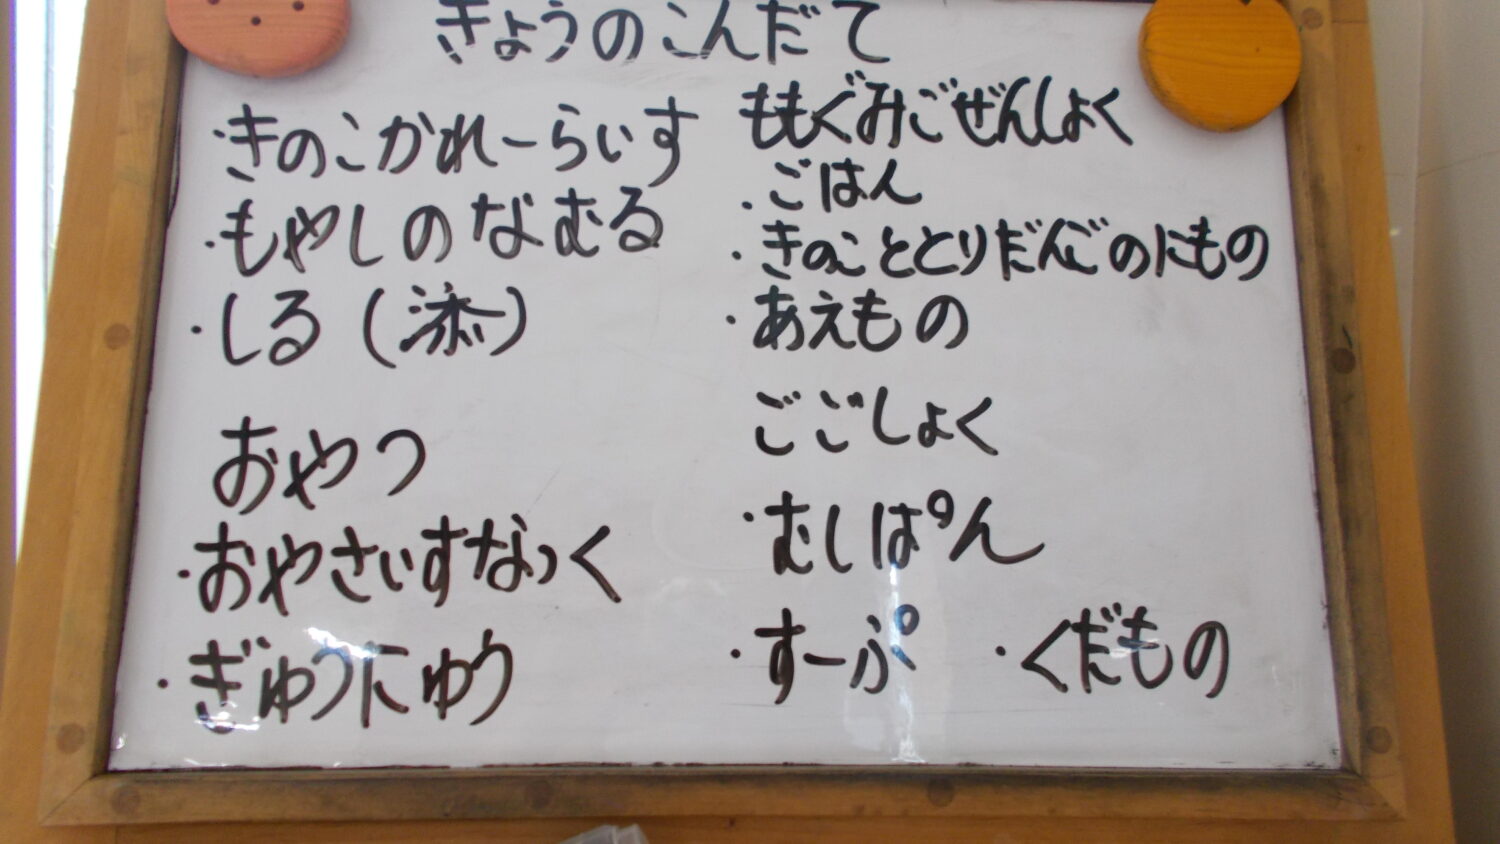 きょうのこんだて
・きのこかれーらいす
・もやしのなむる
・しる(添)
おやつ
・おやさいすなっく
・ぎゅうにゅう
ももぐみごぜんしょく
・ごはん
・きのこととりだんごのにもの
・あえもの
ごごしょく
・むしぱん
・すーぷ ・くだもの